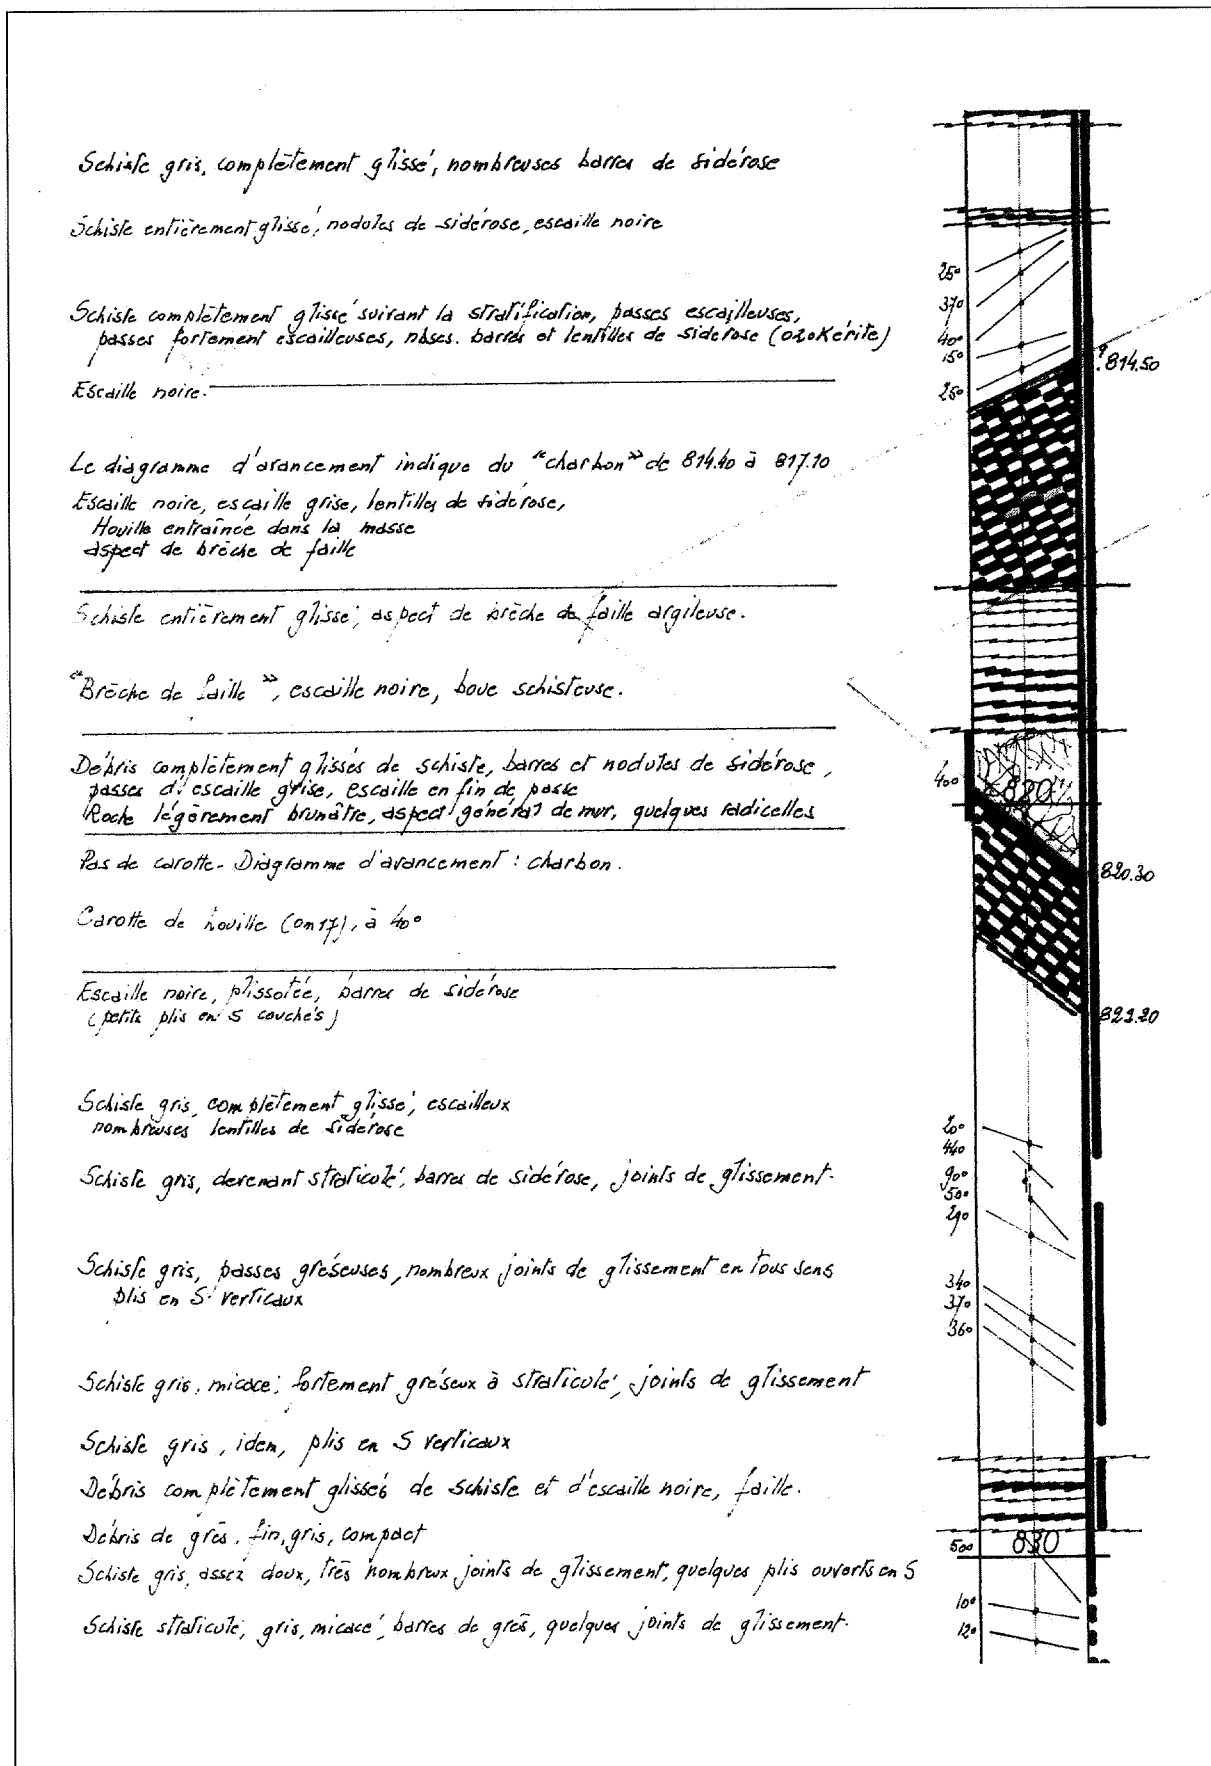 Schiste gris, complètement glissé, nombreuses barres de sidérose
Schiste entièrement glissé, nodules de sidérose, escaille noire
25°
37°
Schiste complètement glissé suivant la stratification, passes escailleuses,
passes fortement escailleuses, nbses. barres et lentilles de sidérose (ozokérite)
40°
15°
? 814.50
Escaille noire.
25°
Le diagramme d'avancement indique du "charbon" de 814.40 à 817.10
Escaille noire, escaille grise, lentilles de sidérose,
Houille entraînée dans la masse
aspect de brèche de faille
Schiste entièrement glissé, aspect de brèche de faille argileuse.
"Brèche de faille", escaille noire, boue schisteuse.
Débris complètement glissés de schiste, barres et nodules de sidérose,
passes d'escaille grise, escaille en fin de passe
Roche légèrement brunâtre, aspect général de mur, quelques radicelles
40°
820
Pas de carotte - Diagramme d'avancement : charbon.
820.30
Carotte de houille (0m17), à 40°
Escaille noire, plissotée, barres de sidérose
(petits plis en S couchés)
Schiste gris, complètement glissé, escailleux
nombreuses lentilles de sidérose
20°
44°
Schiste gris, devenant straticulé, barres de sidérose, joints de glissement.
90°
50°
29°
Schiste gris, passes gréseuses, nombreux joints de glissement en tous sens
plis en S verticaux
34°
37°
36°
Schiste gris, micacé, fortement gréseux à straticulé, joints de glissement
Schiste gris, idem, plis en S verticaux
Débris complètement glissés de schiste et d'escaille noire, faille.
Débris de grès, fin, gris, compact
50°
830
Schiste gris, assez doux, très nombreux joints de glissement, quelques plis ouverts en S
10°
Schiste straticulé, gris, micacé, barres de grès, quelques joints de glissement.
12°